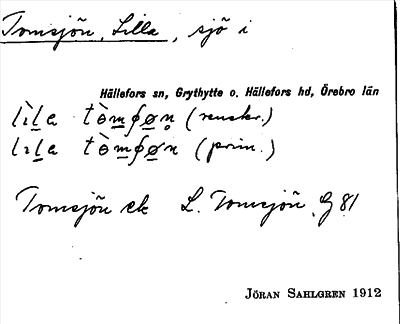 Tomsjön, Lilla, sjö i
Hällefors sn, Grythytte o. Hällefors hd, Örebro län
lìla tòmʃøn (renskr.)
lıla tòmʃøn (prim.)
Tomsjön ek L. Tomsjön, G 81
JÖRAN SAHLGREN 1912